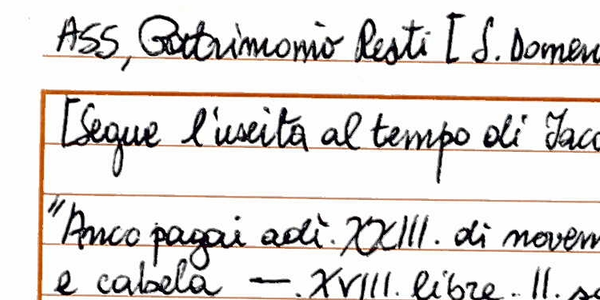 ASS, Patrimonio Resti [ S. Domen
[Segue l'uscita al tempo di Jaco
"Anco pagai adì. XXIII. di novem
e cabela —. XVIII. libre. II. so